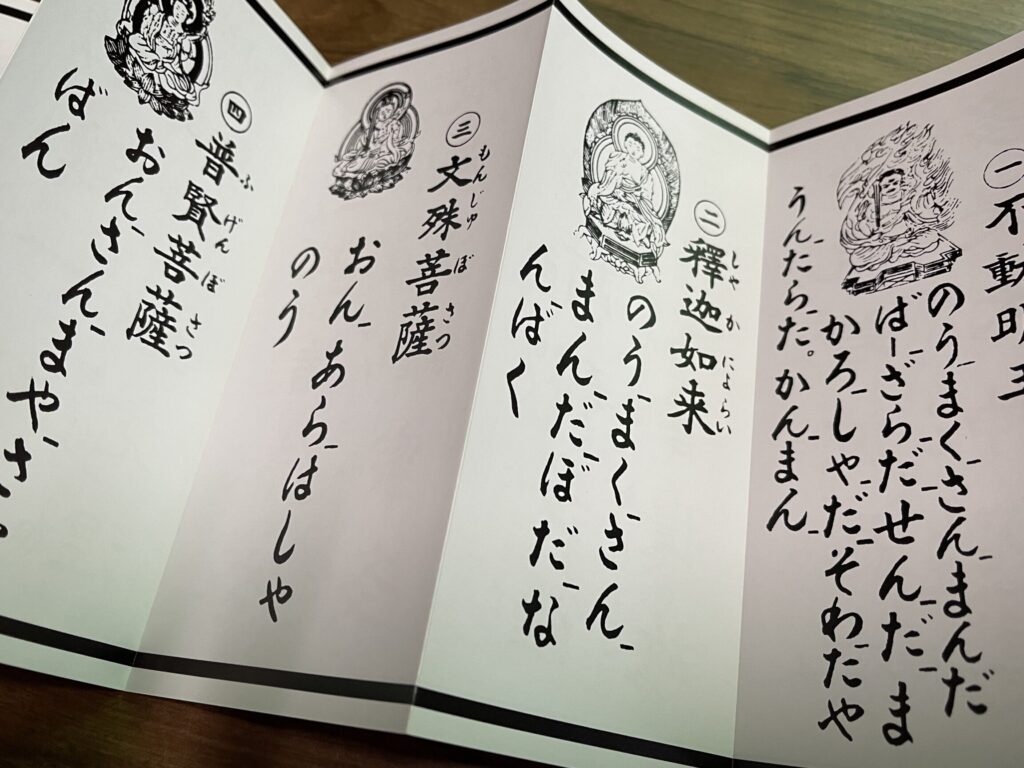 ㊀不動明王
のうまくさんまんだ
ばーざらだせんだま
かろしゃだそわたや
うんたらた。かんまん
㊁釋迦如来
しゃかにょらい
のうまくさん
まんだぼだな
んばく
㊂文殊菩薩
もんじゅぼさつ
おんあらはしゃ
のう
㊃普賢菩薩
ふげんぼさつ
おんさんまやさ
ばん